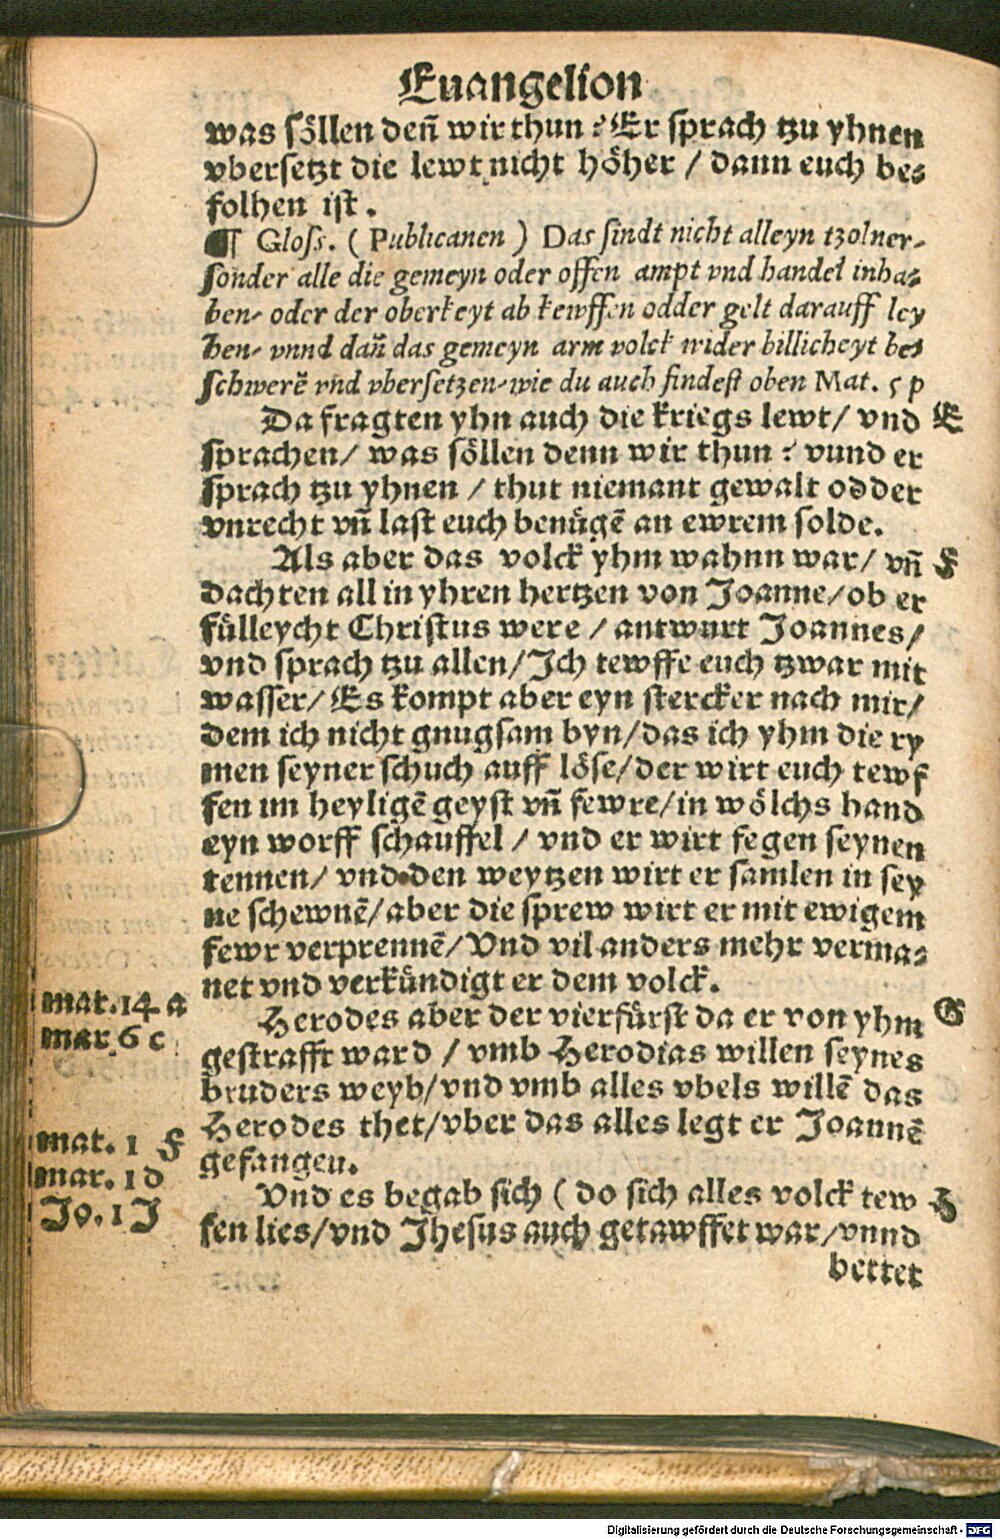 Euangelion
was söllen deñ wir thun? Er sprach tzu yhnen
vbersetzt die lewt nicht höher / dann euch be⸗
folhen ist.
¶ Gloss. ( Publicanen ) Das sindt nicht alleyn tzolner⸗
sonder alle die gemeyn oder offen ampt vnd handel inha⸗
ben⸗ oder der oberkeyt ab kewffen odder gelt darauff ley
hen⸗ vnnd dañ das gemeyn arm volck wider billicheyt be⸗
schwerē vnd vbersetzen⸗wie du auch findest oben Mat. 5 p
Da fragten yhn auch die kriegs lewt/ vnd E
sprachen/ was söllen denn wir thun? vnnd er
sprach tzu yhnen / thut niemant gewalt odder
vnrecht vñ last euch benügē an ewrem solde.
Als aber das volck yhm wahnn war/ vñ F
dachten all in yhren hertzen von Joanne/ob er
fülleycht Christus were / antwurt Joannes/
vnd sprach tzu allen/Ich tewffe euch tzwar mit
wasser/ Es kompt aber eyn stercker nach mir/
dem ich nicht gnugsam byn/das ich yhm die ry
men seyner schuch auff löse/der wirt euch tewf
fen im heyligē geyst vñ fewre/in wölchs hand
eyn worff schauffel / vnd er wirt fegen seynen
tennen/ vnd den weytzen wirt er samlen in sey
ne schewnē/aber die sprew wirt er mit ewigem
fewr verprennē/Vnd vil anders mehr verma⸗
net vnd verkündigt er dem volck.
mat.14 a
mar 6 c
Herodes aber der vierfürst da er von yhm G
gestrafft ward / vmb Herodias willen seynes
bruders weyb/vnd vmb alles vbels willē das
Herodes thet/vber das alles legt er Joannē
gefangen.
mat. 1 F
mar. 1 d
Jo. 1 J
Vnd es begab sich ( do sich alles volck tew H
fen lies/vnd Jhesus auch getawffet war/vnnd
bettet
Digitalisierung gefördert durch die Deutsche Forschungsgemeinschaft - DFG